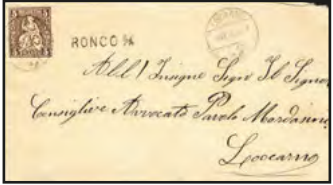 5 5
RONCO %
All' Insigne Sigr Il Signor
Consigliere Avvocato Paolo Mordasini
Locarno